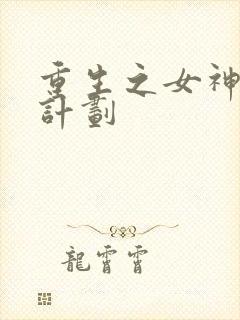 重生之女神
計劃
龍霄霄